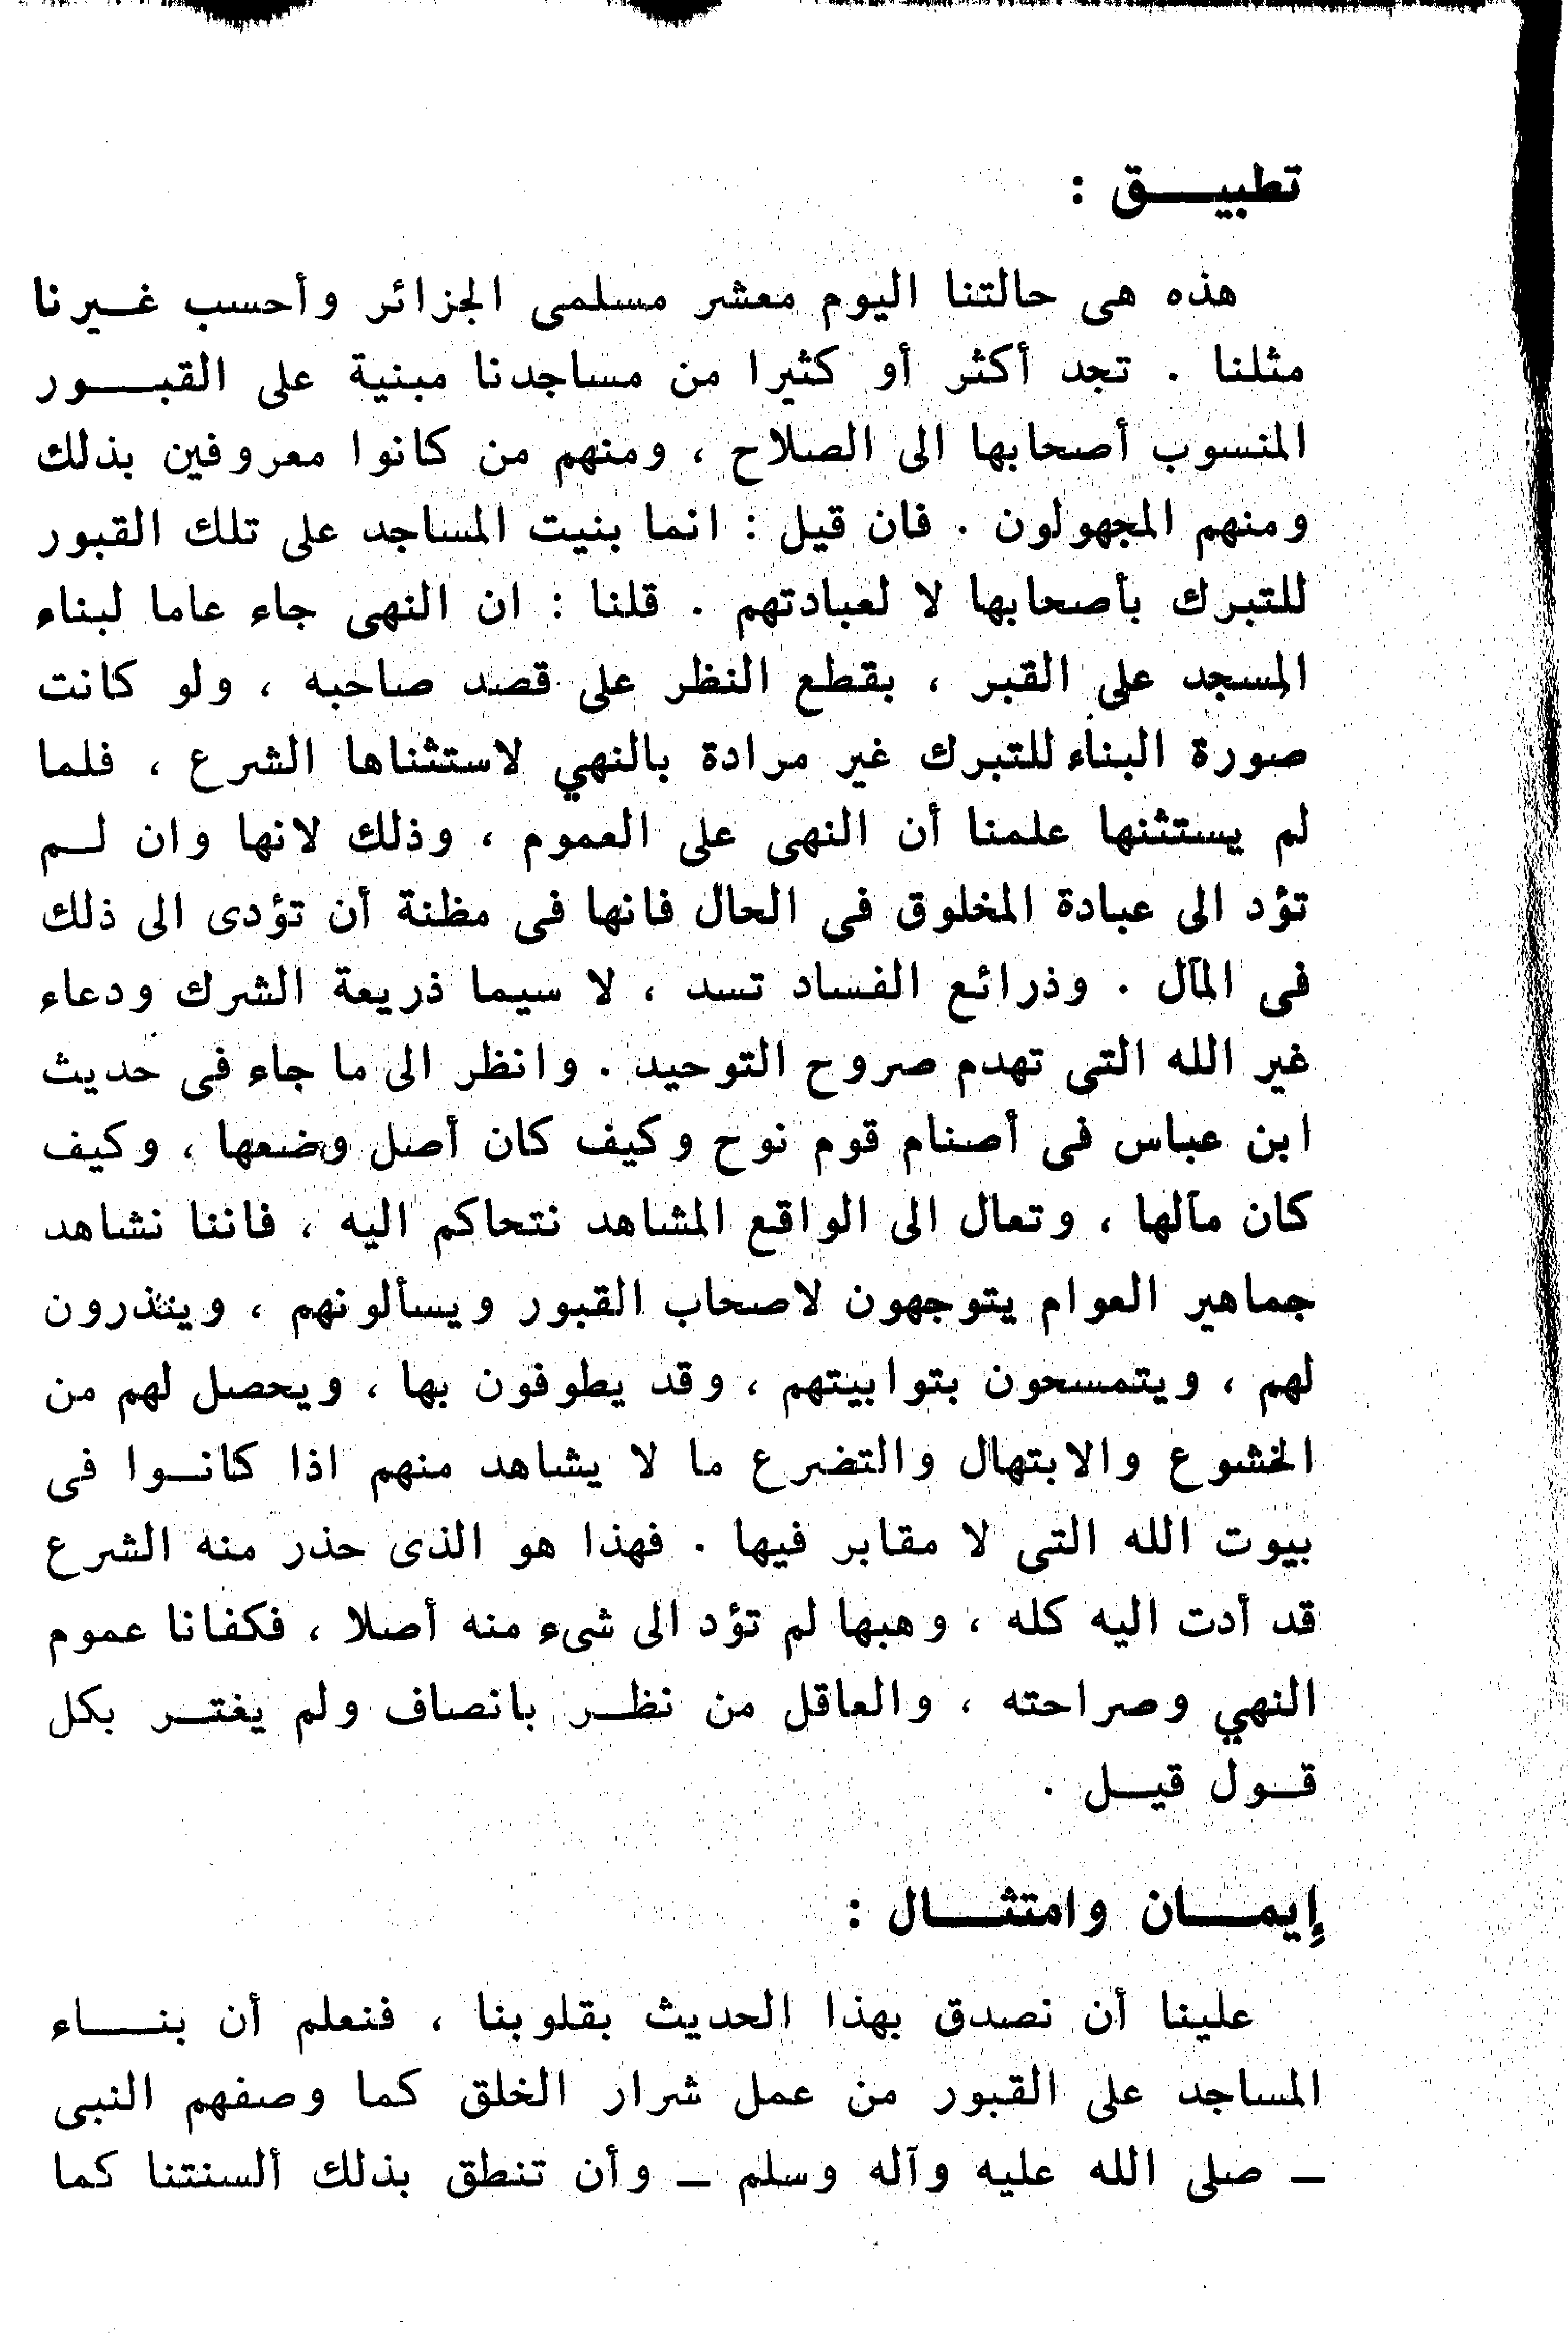 تطبيق :
هذه هى حالتنا اليوم معشر مسلمى الجزائر وأحسب غيرنا
مثلنا . تجد أكثر أو كثيرا من مساجدنا مبنية على القبور
المنسوب أصحابها الى الصلاح ، ومنهم من كانوا معروفين بذلك
ومنهم المجهولون . فان قيل : انما بنيت المساجد على تلك القبور
للتبرك بأصحابها لا لعبادتهم . قلنا : ان النهى جاء عاما لبناء
المسجد على القبر ، بقطع النظر على قصد صاحبه ، ولو كانت
صورة البناء للتبرك غير مرادة بالنهي لاستثناها الشرع ، فلما
لم يستثنها علمنا أن النهى على العموم ، وذلك لانها وان لم
تؤد الى عبادة المخلوق فى الحال فانها فى مظنة أن تؤدى الى ذلك
فى المآل . وذرائع الفساد تسد ، لا سيما ذريعة الشرك ودعاء
غير الله التى تهدم صروح التوحيد . وانظر الى ما جاء فى حديث
ابن عباس فى أصنام قوم نوح وكيف كان أصل وضعها ، وكيف
كان مآلها ، وتعال الى الواقع المشاهد نتحاكم اليه ، فاننا نشاهد
جماهير العوام يتوجهون لاصحاب القبور ويسألونهم ، وينذرون
لهم ، ويتمسحون بتوابيتهم ، وقد يطوفون بها ، ويحصل لهم من
الخشوع والابتهال والتضرع ما لا يشاهد منهم اذا كانوا فى
بيوت الله التى لا مقابر فيها . فهذا هو الذى حذر منه الشرع
قد أدت اليه كله ، وهبها لم تؤد الى شىء منه أصلا ، فكفانا عموم
النهي وصراحته ، والعاقل من نظر بانصاف ولم يغتر بكل
قول قيل .
إيمان وامتثال :
علينا أن نصدق بهذا الحديث بقلوبنا ، فنعلم أن بناء
المساجد على القبور من عمل شرار الخلق كما وصفهم النبى
— صلى الله عليه وآله وسلم — وأن تنطق بذلك ألسنتنا كما